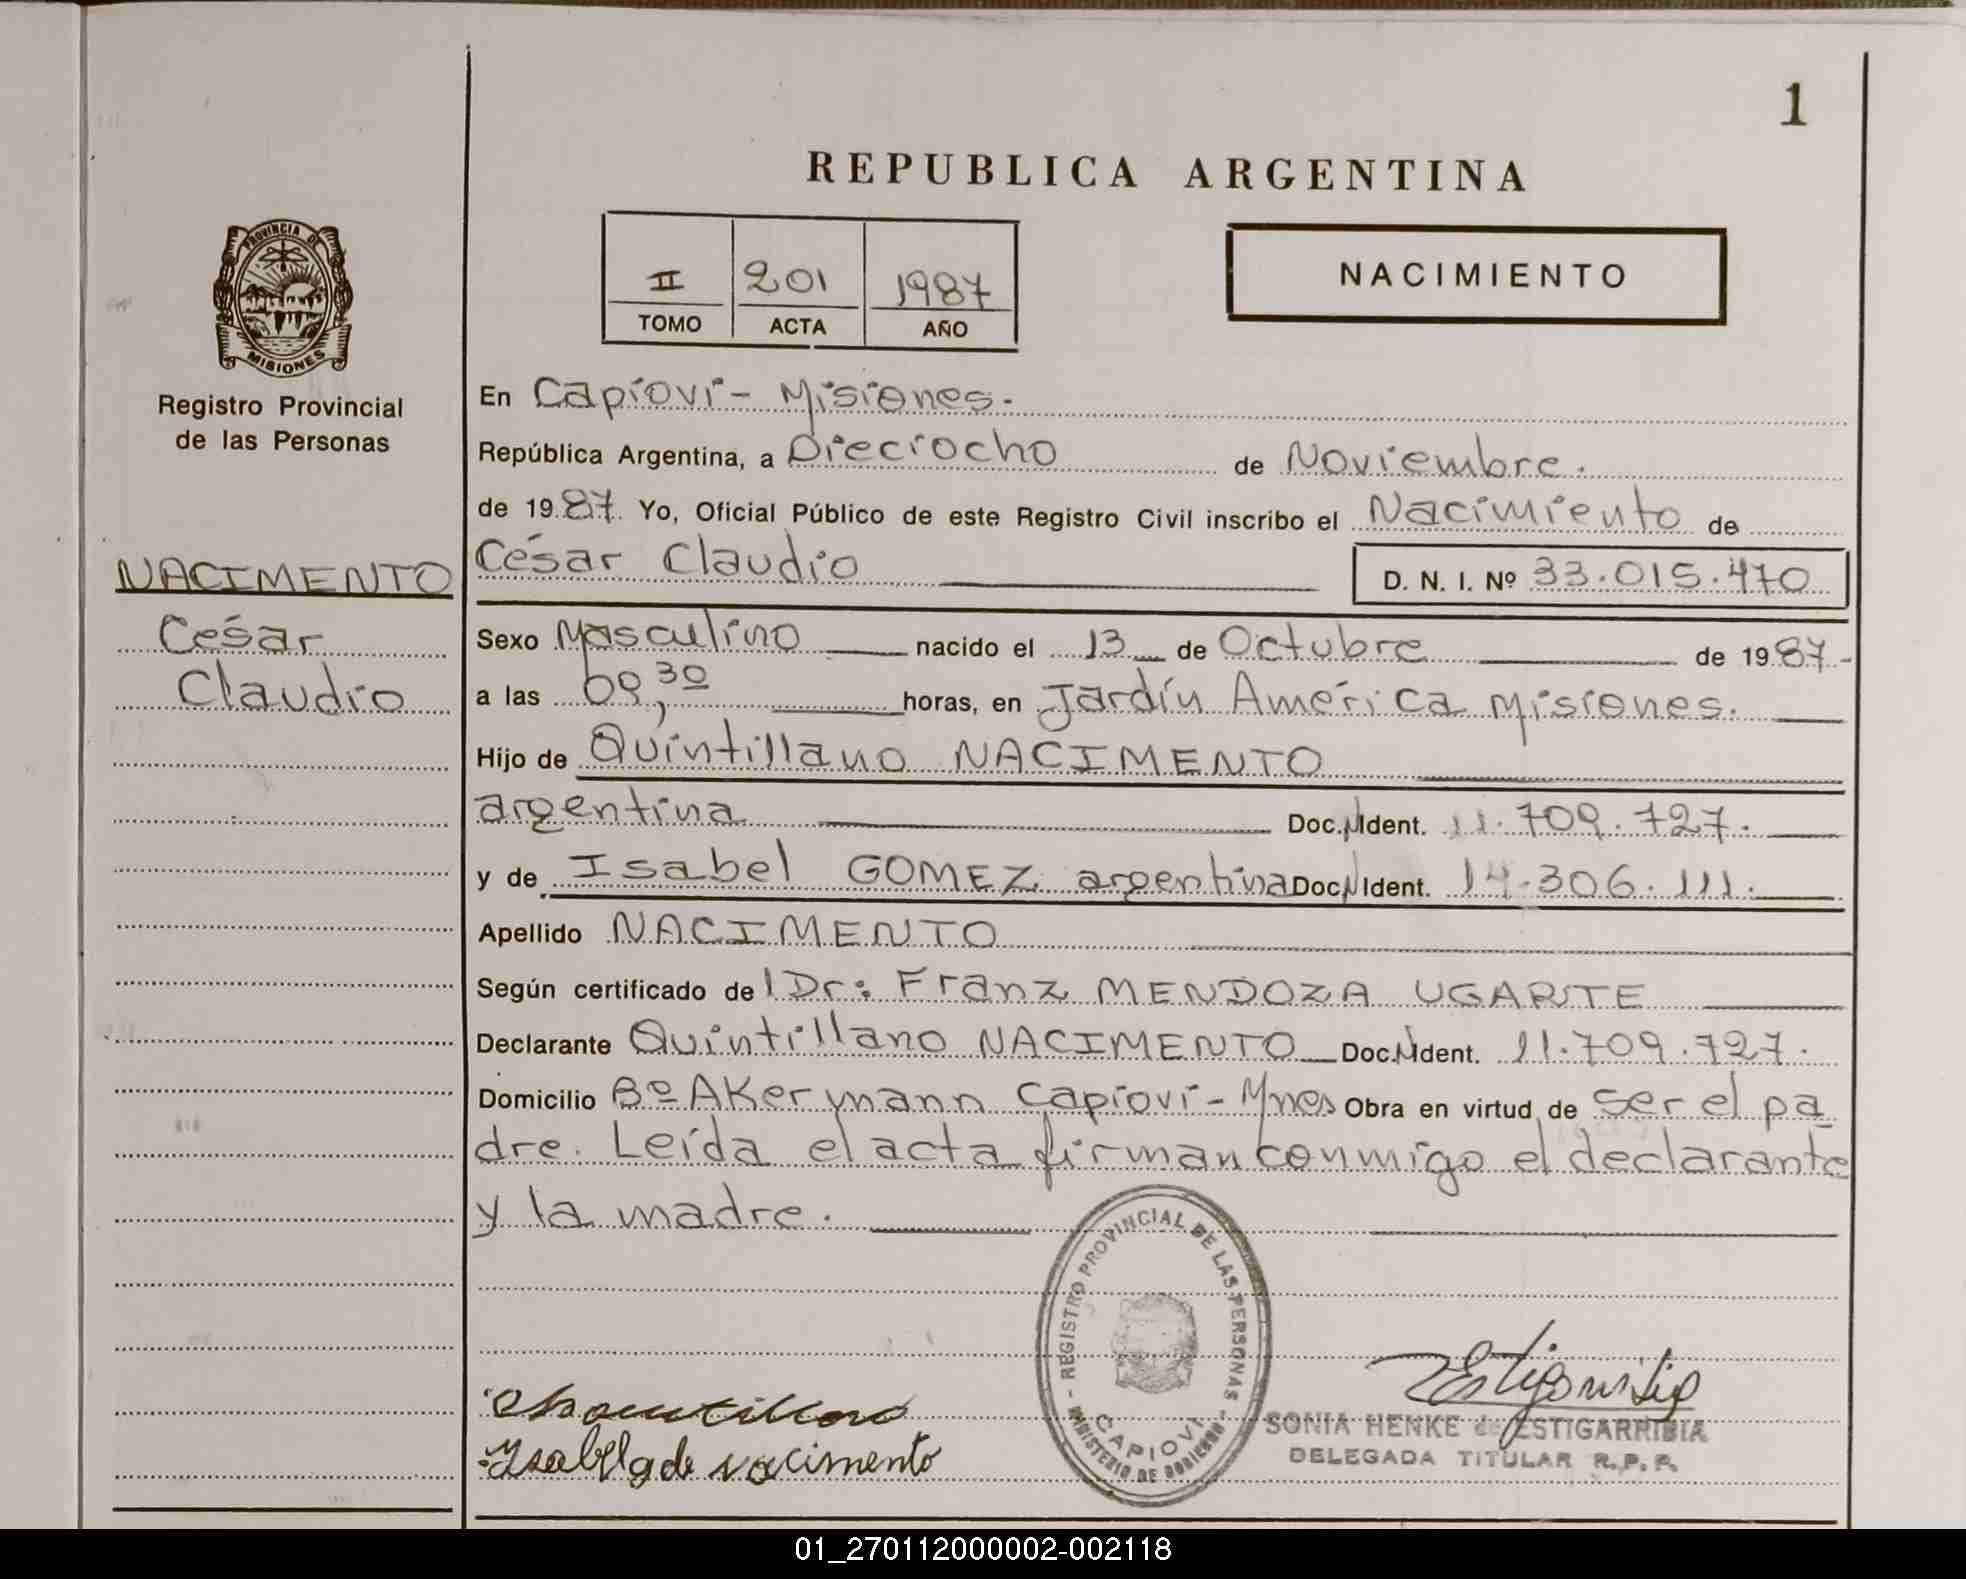 1
REPUBLICA ARGENTINA
PROVINCIA DE
MISIONES
Registro Provincial
de las Personas
II 201 1987
TOMO ACTA AÑO
NACIMIENTO
En Capioví - Misiones.
República Argentina, a Dieciocho de Noviembre.
de 1987. Yo, Oficial Público de este Registro Civil inscribo el Nacimiento de
César Claudio D. N. I. Nº 33.015.470
NACIMENTO
César
Claudio
Sexo Masculino nacido el 13 de Octubre de 1987.-
a las 09,30 horas, en Jardín América Misiones.
Hijo de Quintillano NACIMENTO
argentina Doc. N Ident. 11.709.727.
y de Isabel GOMEZ argentina Doc. N Ident. 14.306.111.
Apellido NACIMENTO
Según certificado del Dr: Franz MENDOZA UGARTE
Declarante Quintillano NACIMENTO Doc. N Ident. 11.709.727.
Domicilio Bº AKermann Capioví - Mnes Obra en virtud de ser el pa
dre. Leída el acta firman conmigo el declarante
y la madre.
REGISTRO PROVINCIAL DE LAS PERSONAS
CAPIOVI
MINISTERIO DE GOBIERNO
Isabel g de nacimento
SONIA HENKE de ESTIGARRIBIA
DELEGADA TITULAR R.P.P.
01_270112000002-002118